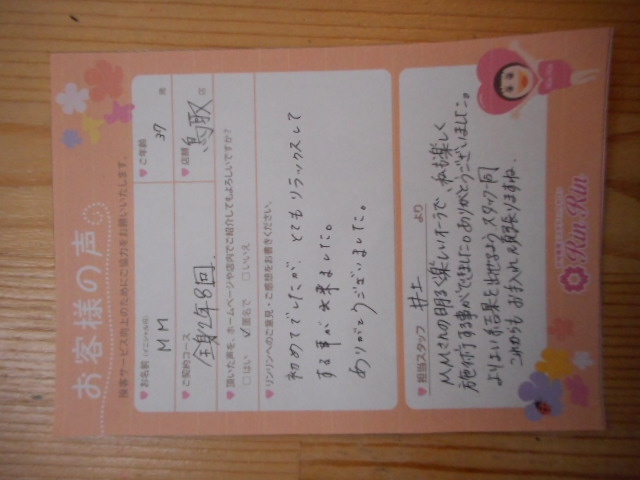 お客様の声
接客サービス向上のためにご協力をお願いいたします。
♥お名前（イニシャル可） MM
♥ご年齢 37 歳
♥ご契約コース 全身2年8回
♥店舗 鳥取 店
♥頂いた声を、ホームページや店内でご紹介してもよろしいですか？
□はい ✓匿名で □いいえ
♥リンリンへのご意見・ご感想をお書きください。
初めてでしたが、とてもリラックスして
する事が出来ました。
ありがとうございました。
♥担当スタッフ 井上 より
M.Mさんの明るく楽しいオーラで、私も楽しく
施術する事ができました。ありがとうございました。
よりよい結果を出せるようスタッフ一同
これからもお手入れ頑張りますね。
Rin Rin